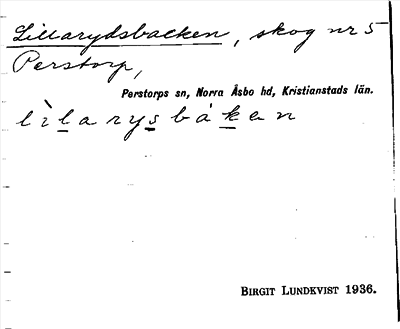 Lillarydsbacken, skog nr 5
Perstorp,
Perstorps sn, Norra Åsbo hd, Kristianstads län.
lìlarysbáken
BIRGIT LUNDKVIST 1936.